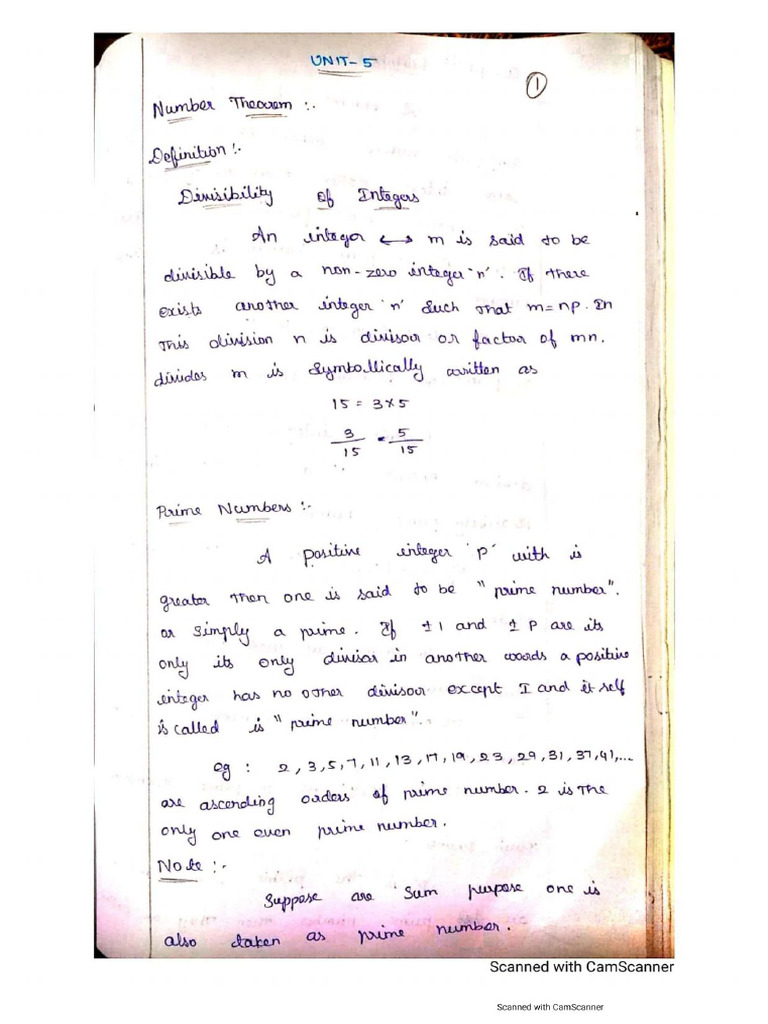 UNIT-5
1
Number Theorem :-
Definition :-
Divisibility of Integers
An integer ↔ m is said to be
divisible by a non-zero integer 'n'. If there
exists another integer 'n' Such that m=np. In
this division n is divisour or factor of mn.
divides m is Symbollically written as
15 = 3×5
3/15 = 5/15
Prime Numbers :-
A positive integer 'p' with is
greater then one is said to be "prime number".
or simply a prime. If ±1 and ±p are its
only its only divisar in another words a positive
integer has no other divisour except 1 and it self
is called is "prime number".
eg : 2,3,5,7,11,13,17,19,23,29,31,37,41,...
are ascending orders of prime number. 2 is the
only one even prime number.
Note :-
Suppose are Sum purpose one is
also taken as prime number.
Scanned with CamScanner
Scanned with CamScanner